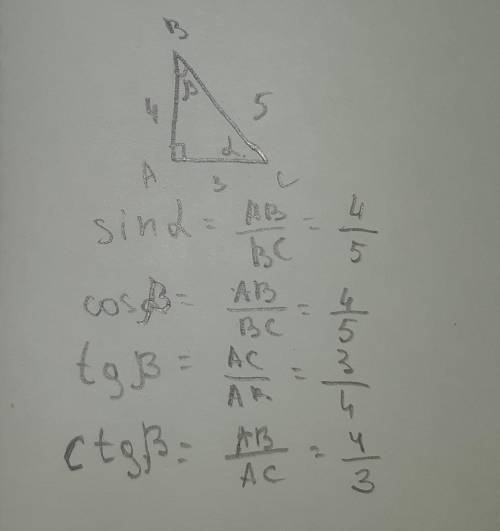 B
β
4 5
A α C
3
sin α = AB/BC = 4/5
cos β = AB/BC = 4/5
tg β = AC/AB = 3/4
ctg β = AB/AC = 4/3